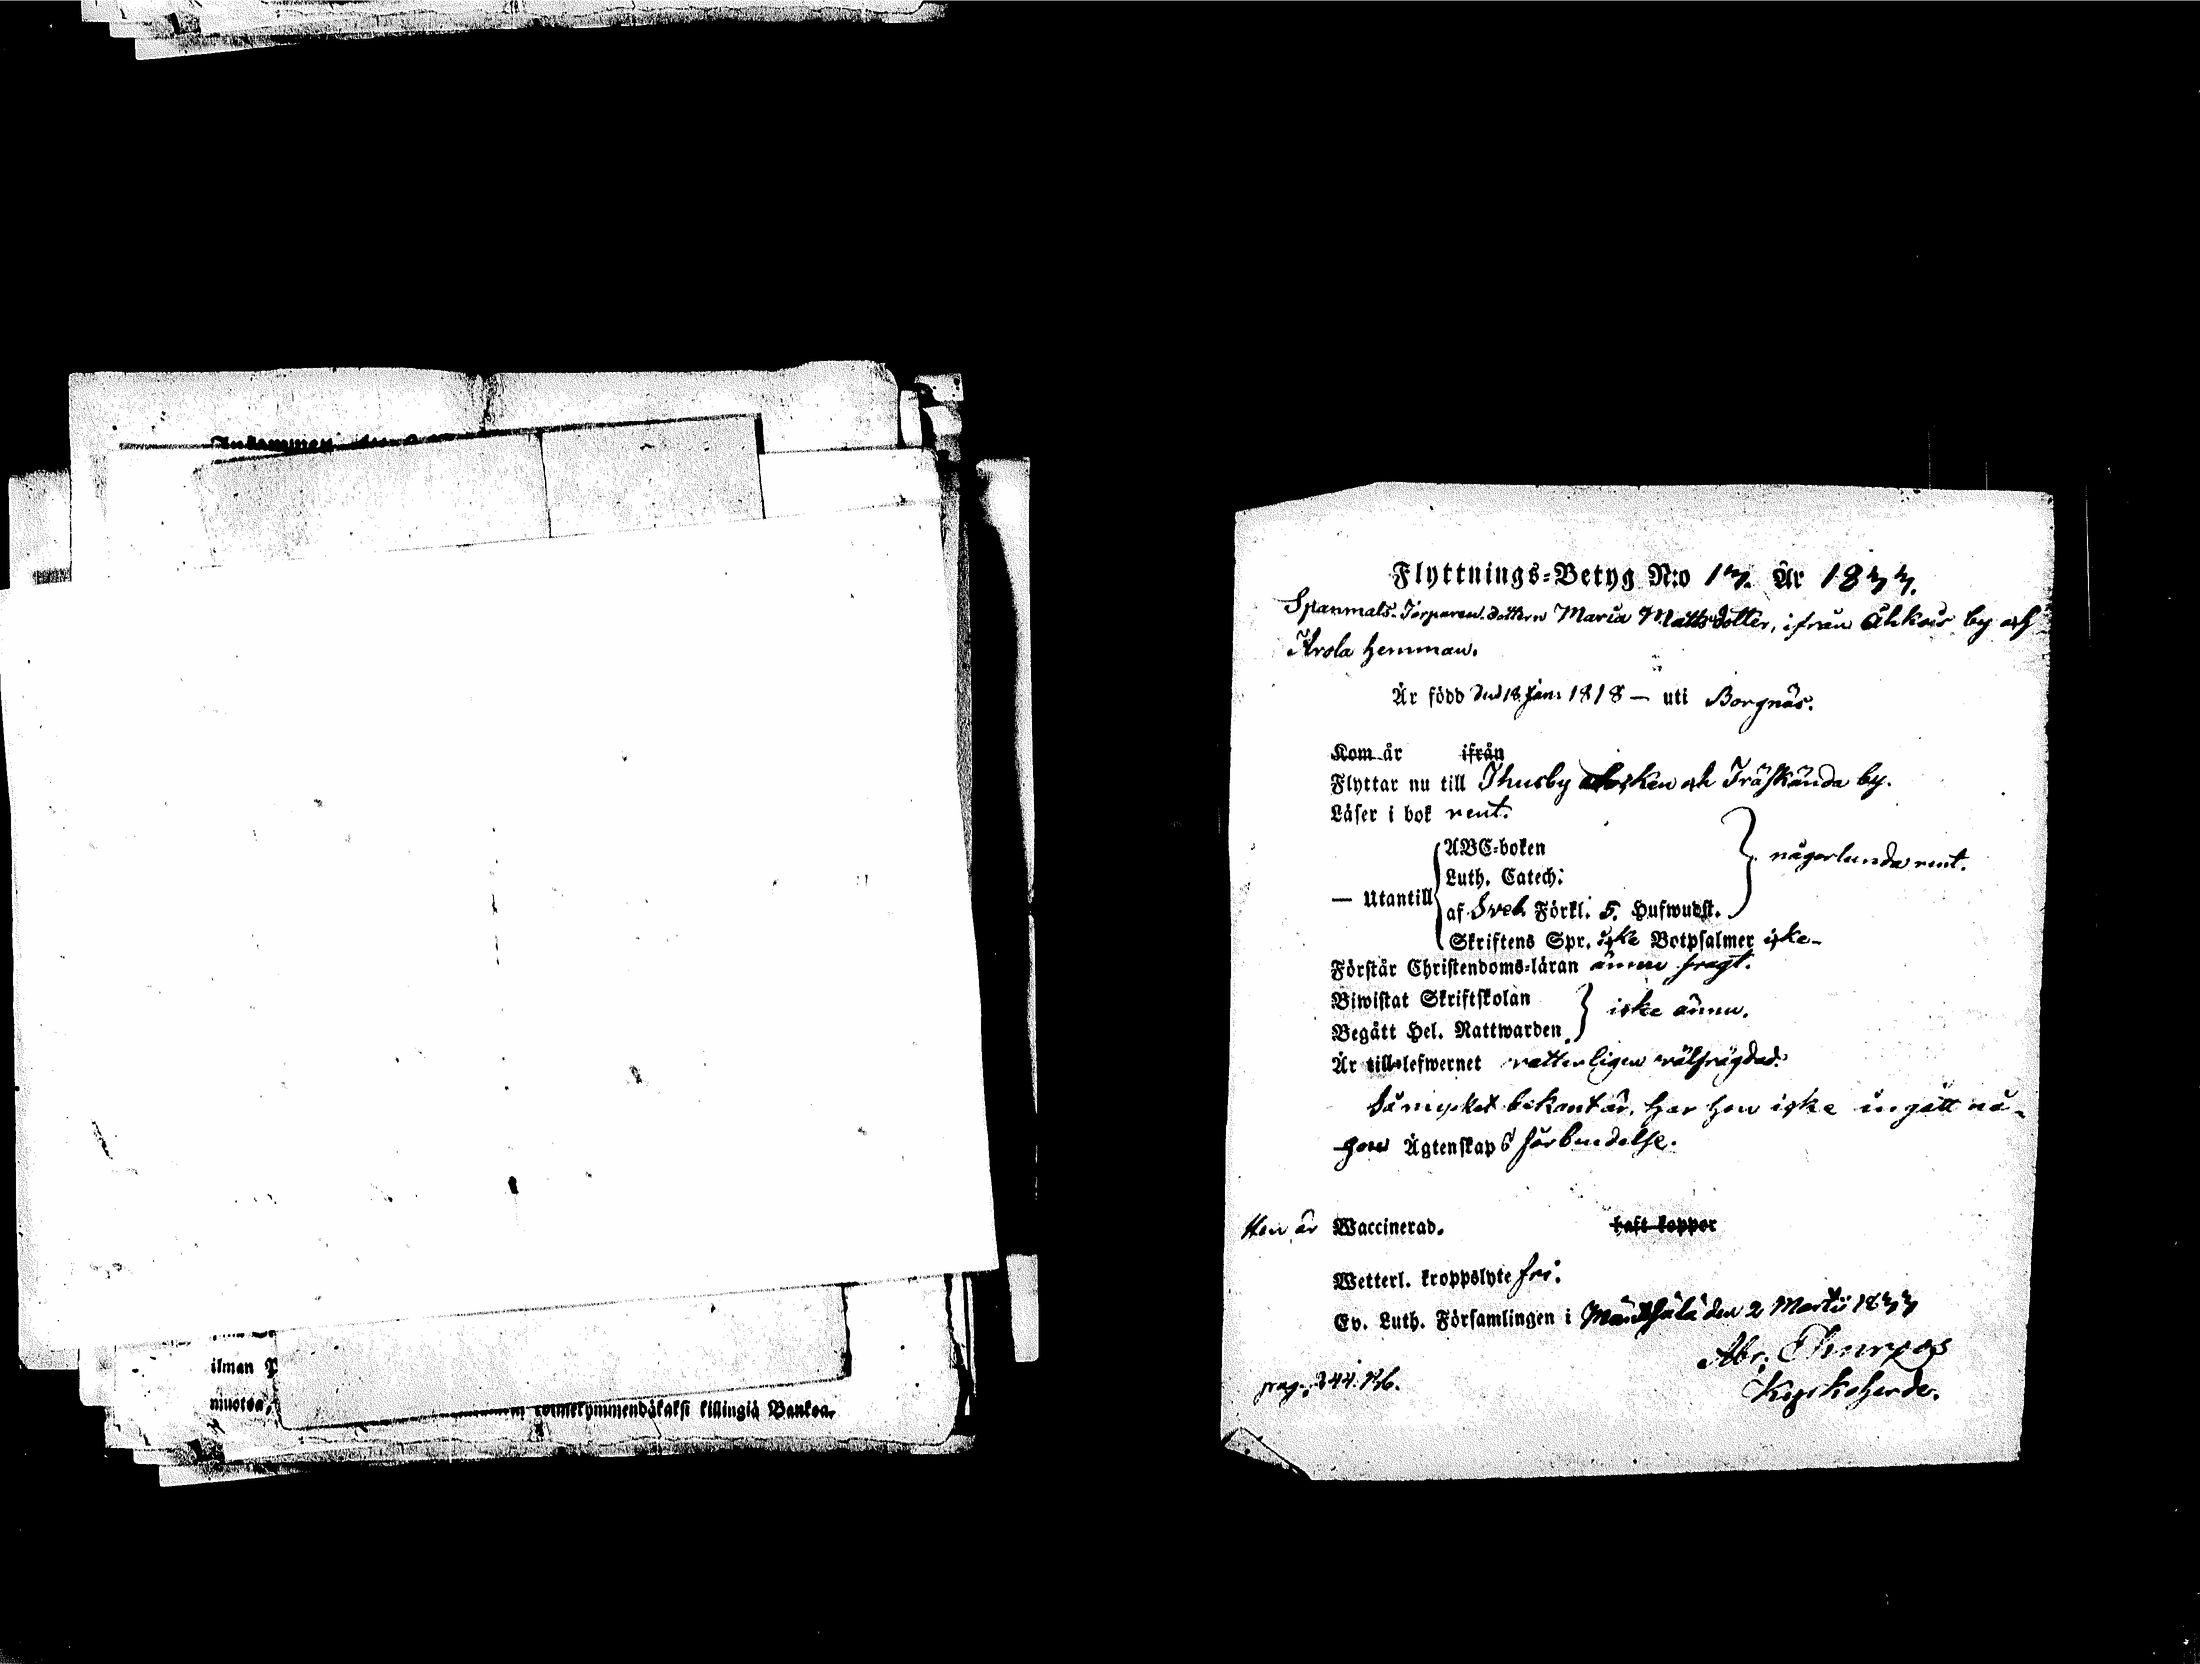 ilman
muotoa,
kolmekymmendäkaksi killingiä Bankoa.
Flyttnings-Betyg N:o 17. År 1833.
Spanmåls-Torparen dottern Maria Mattsdotter, ifrån Ähkois by och
Krola hemman.
Är född den 18 Jan: 1818 — uti Borgnäs.
Kom år ifrån
Flyttar nu till Thusby Socken och Träskända by.
Läser i bok rent.
— Utantill
ABC-boken
Luth. Catech:
af Sveb Förkl. 5. Hufwudst.
någorlunda rent.
Skriftens Spr. icke Botpsalmer icke-
Förstår Christendoms-läran ännu svagt.
Biwistat Skriftskolan
Begått Hel. Nattwarden
icke ännu.
Är till lefwernet vetterligen välfrägdad.
Så mycket bekant är, har hon icke ingått nå-
gon Ägtenskaps förbindelse.
Hon är Waccinerad. haft koppor
Wetterl. kroppslyte fri.
Ev. Luth. Församlingen i Mäntsälä den 2 Martii 1833
Abr:
Kyrkoherde.
pag: 244.